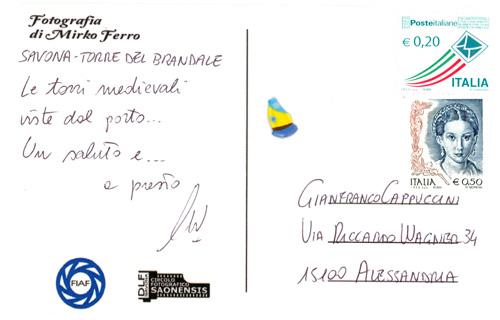 Fotografia
di Mirko Ferro
SAVONA-TORRE DEL BRANDALE
Le torri medievali
viste dal porto...
Un saluto e...
a presto
Posteitaliane
€ 0,20
ITALIA
ITALIA
€ 0,50
GIANFRANCO CAPPUCCINI
VIA RICCARDO WAGNER 34
15100 ALESSANDRIA
FIAF
DLF
CIRCOLO
FOTOGRAFICO
SAONENSIS